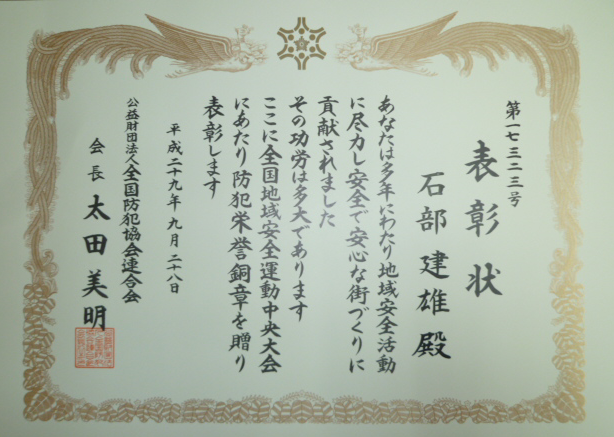 第一七三二三号
表彰状
石部建雄殿
あなたは多年にわたり地域安全活動
に尽力し安全で安心な街づくりに
貢献されました
その功労は多大であります
ここに全国地域安全運動中央大会
にあたり防犯栄誉銅章を贈り
表彰します
平成二十九年九月二十八日
公益財団法人全国防犯協会連合会
会長 太田美明